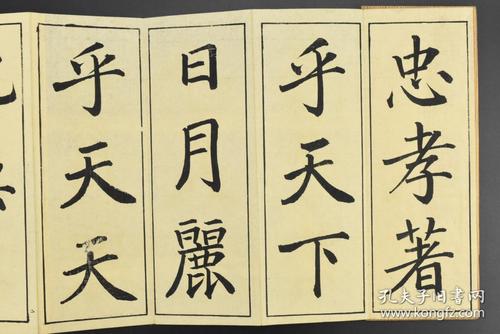 忠孝著
乎天下
日月麗
乎天天
孔夫子旧书网